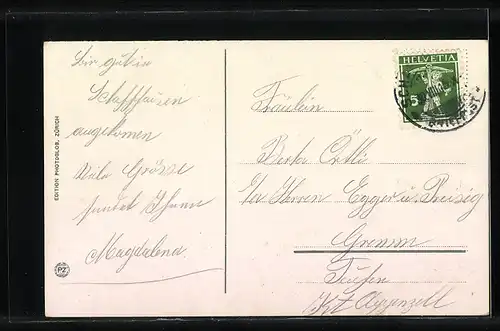 Bin gut in
Schaffhausen
angekomen
Viele Grösse
sendet Ihnen
Magdalena
EDITION PHOTOGLOB, ZÜRICH
PZ
HELVETIA
5
Fräulein
Berta Örtli
Herren Egger u. Preisig
Gremm
Teufen
Kt. Appenzell